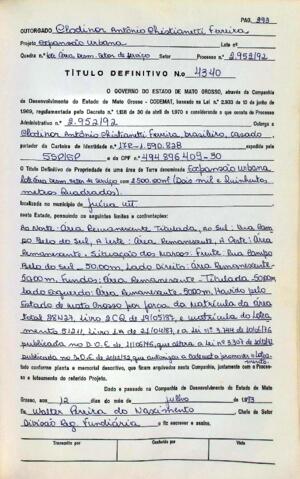 Pag. 293
OUTORGADO, Clodinor Antônio Christianetti Ferreira
Projeto Expansão Urbana Lote nº
Quadra nº Setor Processo nº 2.952/92
TÍTULO DEFINITIVO N.o 4340
O GOVERNO DO ESTADO DE MATO GROSSO, através da Companhia
de Desenvolvimento do Estado de Mato Grosso - CODEMAT, baseado na Lei de 10 de junho de
1969, regulamentado pelo Decreto n.o de 30 de abril de 1970 e considerando o que consta do Processo
Administrativo n.o 2.952/92 Outorga a
Clodinor Antônio Christianetti Ferreira, brasileiro, casado,
portador da Carteira de Identidade n.o 17R-1.590.828 expedida pelo
SSP/SP e do CPF n.o 494896409-30
o Título Definitivo de Propriedade de uma área de Terra denominada Expansão Urbana
2500.00m² (Dois mil e Quinhentos
metros Quadrados).
localizada no município de Juína MT
neste Estado, possuindo os seguintes limites e confrontações:
Ao Norte: Área Remanescente Titulada, ao Sul: Rua Campo
Belo do Sul, A Leste: Área Remanescente, A Oeste: Área
Remanescente - Situação dos Marcos: Frente: Rua Campo
Belo do Sul - 50.00m, Lado Direito: Área Remanescente-
50.00m, Fundos: Área Remanescente - Titulada 50.00m
Lado esquerdo: Área Remanescente - 50.00m. Havido pelo
Estado de Mato Grosso por força da Matrícula da área
total 38423, Livro 2CQ de 19/05/87, e matrícula do lotea
mento 51211, Livro de 22/04/87, e a Lei nº de 10/05/76
publicada no D.O.E de 11/05/76, que altera a Lei nº de
publicada no D.O.E de que autoriza a Codemat a promover o lotea-
mento.
tudo conforme planta e memorial descritivo, que foram arquivados nesta Companhia, juntamente com o Proces-
so e loteamento do referido Projeto.
Dado e passado na Companhia de Desenvolvimento do Estado de Mato
Grosso, aos 12 do mês de julho de 1993
Eu Walter Pereira do Nascimento Chefe do Setor
Divisão Reg. Fundiária o fiz escrever e assino.
Transcrito por
Conferido por
Visto